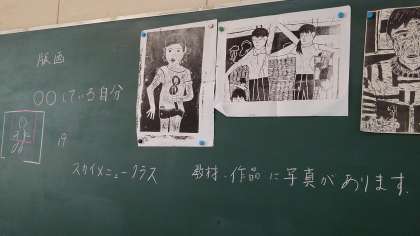 版画
○○している自分
スカイメニュークラス 教材・作品に写真があります。